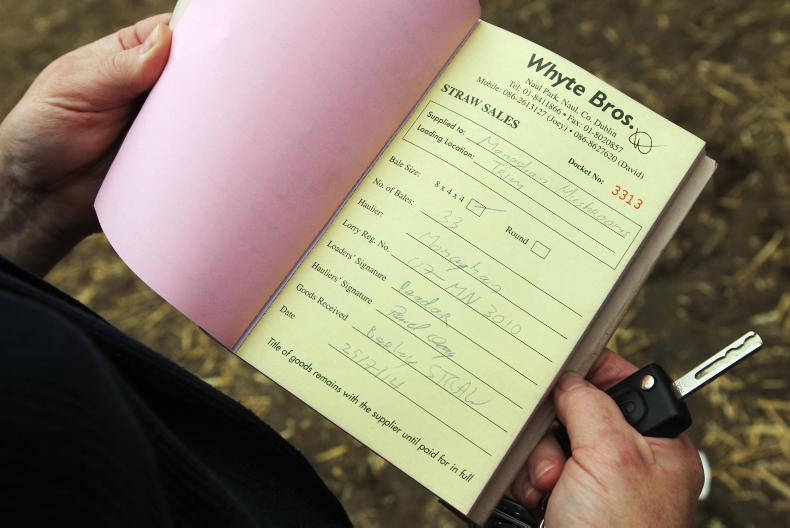 Whyte Bros.
Naul Park, Naul, Co. Dublin
Tel: 01-8411866 • Fax: 01-8020857
Mobile: 086-2613127 (Joey) • 086-8627620 (David)
STRAW SALES
Docket No: 3313
Supplied to: Monaghan Mushrooms
Loading Location: Trim
Bale Size: 8 x 4 x 4 ✓ Round
No. of Bales: 33
Haulier: Monaghan
Lorry Reg. No. 07 MN 3010
Loaders' Signature
Hauliers' Signature
Goods Received Barley STRAW
Date 25/7/14
Title of goods remains with the supplier until paid for in full